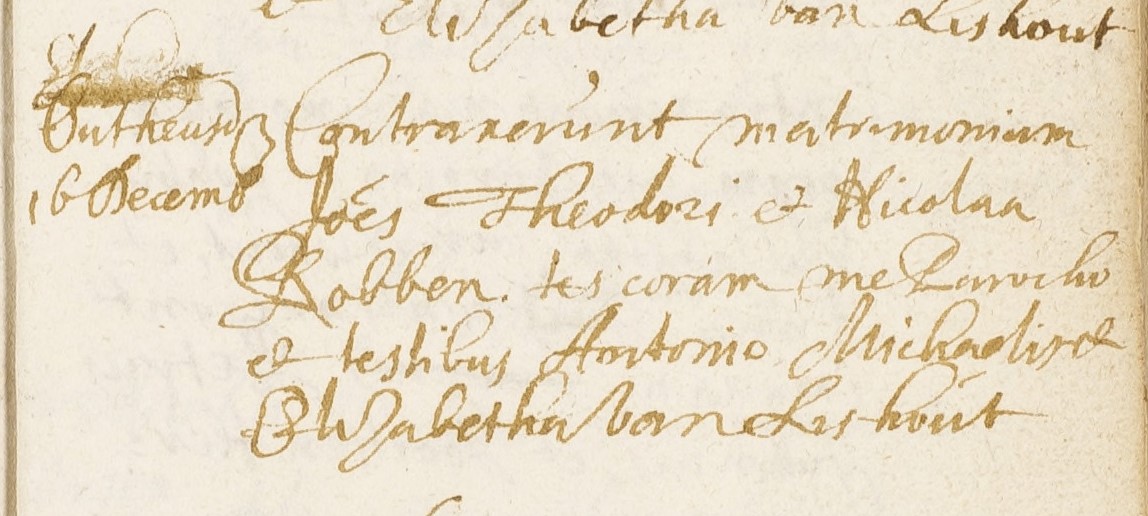 Elisabetha van Lishout
Contraxerunt matrimonium
16 Decemb Joēs Theodori et Nicolaa
Robben. tes coram me Parocho
et testibus Antonio Michaelis et
Elisabetha van Lishout